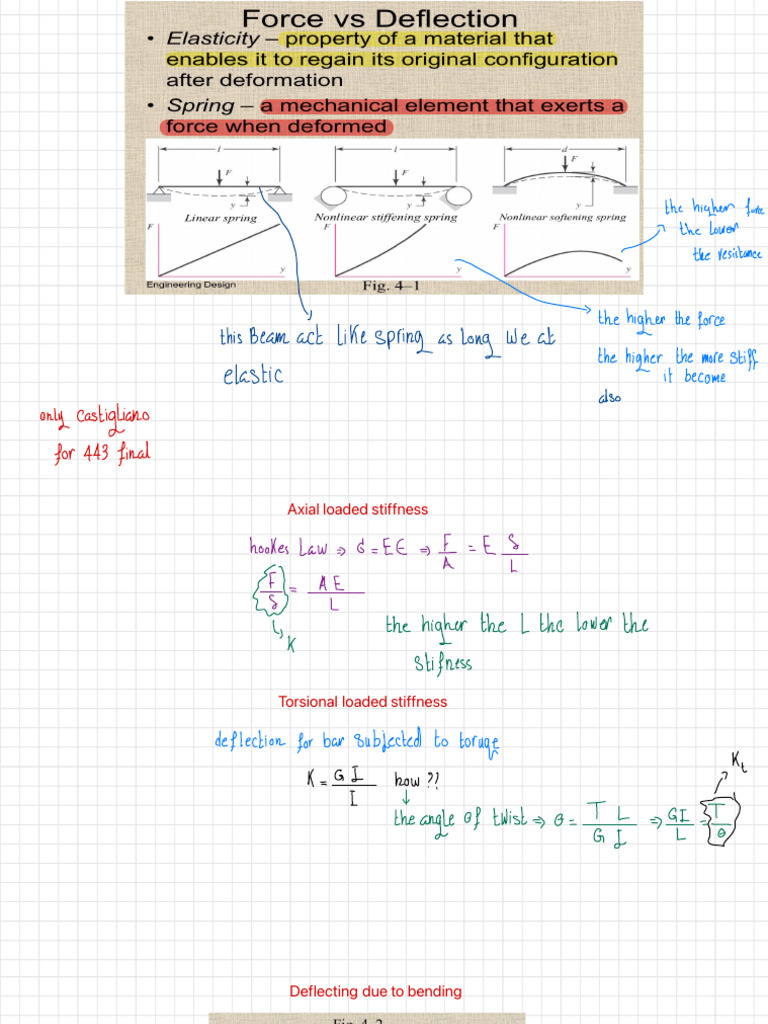 Force vs Deflection
• Elasticity – property of a material that
enables it to regain its original configuration
after deformation
• Spring – a mechanical element that exerts a
force when deformed
l
F
y
Linear spring
F
y
l
F
y
Nonlinear stiffening spring
F
y
d
F
y
Nonlinear softening spring
F
y
Engineering Design
Fig. 4–1
the higher force
the lower
the resistance
this Beam act like spring as long we at
elastic
the higher the force
the higher the more stiff
it become
also
only Castigliano
for 443 final
Axial loaded stiffness
hookes Law ⇒ σ = EЄ ⇒ F/A = E δ/L
F/δ = AE/L
K
the higher the L the lower the
stifness
Torsional loaded stiffness
deflection for bar subjected to toruqe
K = GI/I how??
the angle of twist ⇒ θ = TL/GI ⇒ GI/L = T/θ
Kt
Deflecting due to bending
Fig 4–2